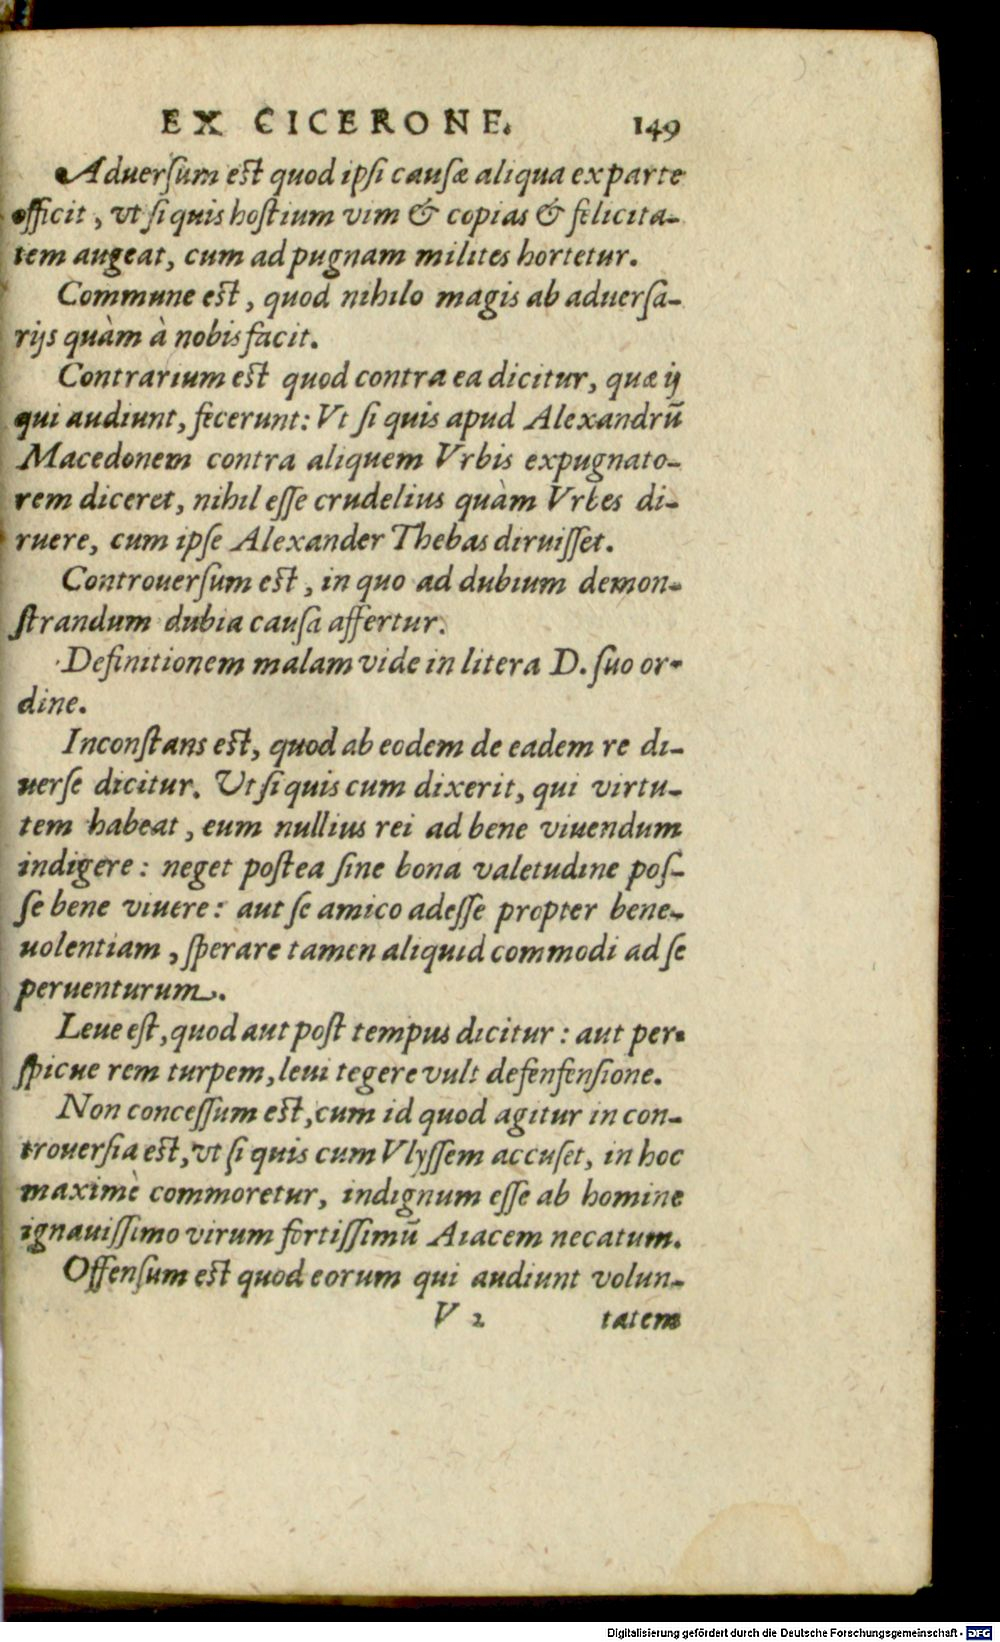 EX CICERONE. 149
Aduerſum eſt quod ipſi cauſæ aliqua ex parte
officit, vt ſi quis hoſtium vim & copias & felicita-
tem augeat, cum ad pugnam milites hortetur.
Commune eſt, quod nihilo magis ab aduerſa-
rijs quàm à nobis facit.
Contrarium eſt quod contra ea dicitur, quæ ij
qui audiunt, fecerunt: Vt ſi quis apud Alexandrū
Macedonem contra aliquem Vrbis expugnato-
rem diceret, nihil eſſe crudelius quàm Vrbes di-
ruere, cum ipſe Alexander Thebas diruiſſet.
Controuerſum eſt, in quo ad dubium demon-
ſtrandum dubia cauſa affertur.
Definitionem malam vide in litera D. ſuo or-
dine.
Inconſtans eſt, quod ab eodem de eadem re di-
uerſe dicitur. Vt ſi quis cum dixerit, qui virtu-
tem habeat, eum nullius rei ad bene viuendum
indigere: neget poſtea ſine bona valetudine poſ-
ſe bene viuere: aut ſe amico adeſſe propter bene-
uolentiam, ſperare tamen aliquid commodi ad ſe
peruenturum.
Leue eſt, quod aut poſt tempus dicitur: aut per-
ſpicue rem turpem, leui tegere vult defenfenſione.
Non conceſſum eſt, cum id quod agitur in con-
trouerſia eſt, vt ſi quis cum Vlyſſem accuſet, in hoc
maximè commoretur, indignum eſſe ab homine
ignauiſſimo virum fortiſſimū Aiacem necatum.
Offenſum eſt quod eorum qui audiunt volun-
V 2 tatem
Digitalisierung gefördert durch die Deutsche Forschungsgemeinschaft - DFG